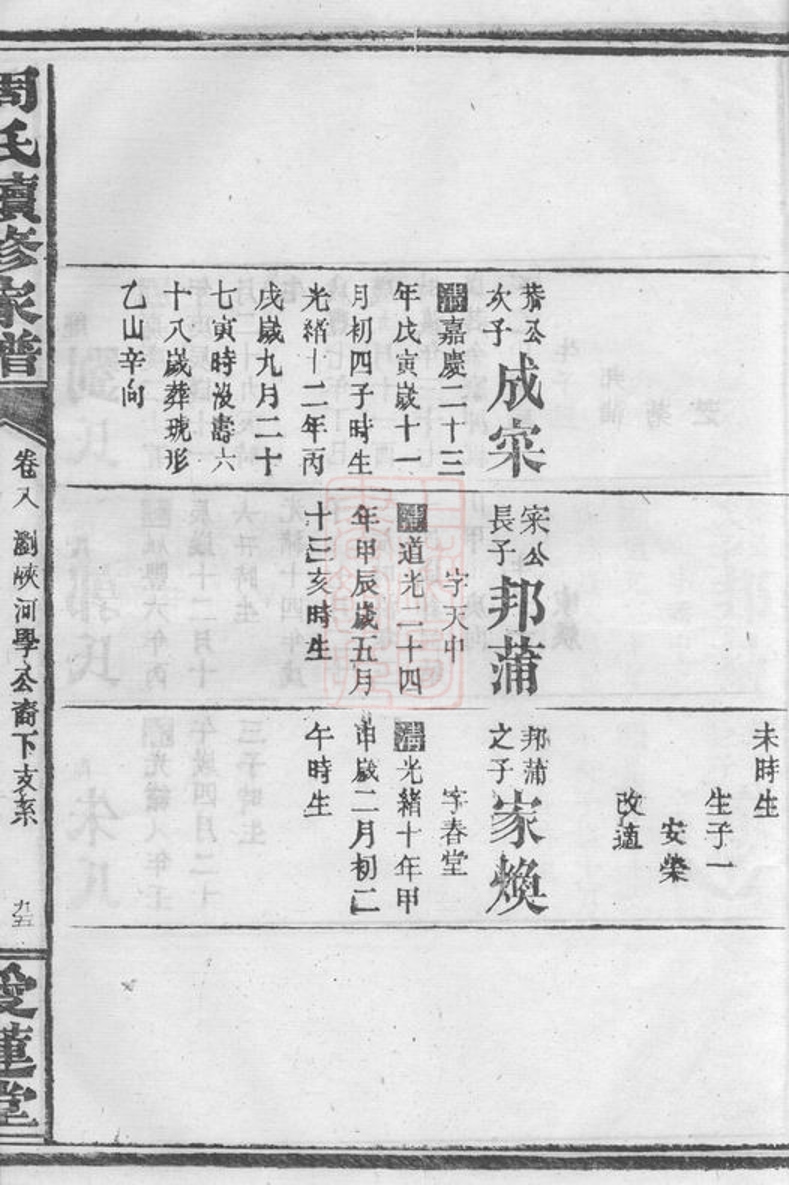 未時生
生子一
安榮
改適
恭公
次子
成寀
清嘉慶二十三
年戊寅歲十一
月初四子時生
光緒十二年丙
戌歲九月二十
七寅時沒壽六
十八歲葬琥形
乙山辛向
寀公
長子
邦蒲
字天中
清道光二十四
年甲辰歲五月
十三亥時生
邦蒲
之子
家煥
字春堂
清光緒十年甲
申歲二月初二
午時生
周氏續修家譜
卷八
瀏峽河學公裔下支系
九五
愛蓮堂